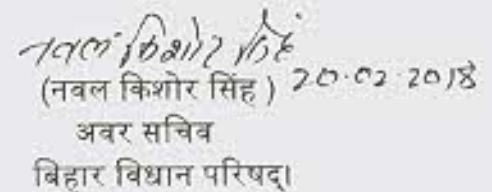 नवल किशोर सिंह
(नवल किशोर सिंह ) 20.02.2018
अवर सचिव
बिहार विधान परिषद्।